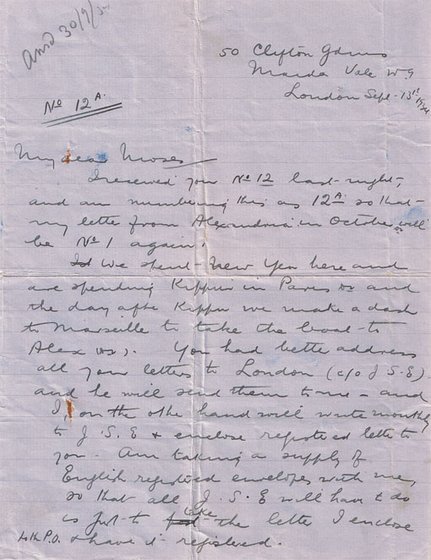 Ansd 30/9/34
50 Clifton Gdns
Maida Vale W 9
London Sept. 13th 1934
No 12A.
My dear Moses
I received your No 12 last night,
and am numbering this as 12A so that
my letter from Alexandria in October will
be No 1 again.
We spend New Year here and
are spending Kippur in Paris and
the day after Kippur we make a dash
to Marseille to take the boat to
Alex. You had better address
all your letters to London (c/o J.S.E)
and he will send them to me - and
I, on the other hand will write monthly
to J.S.E & enclose registered letter to
you - Am taking a supply of
English registered envelopes with me,
so that all J.S.E will have to do
is just to take the letter I enclose
to the P.O. & have it registered.